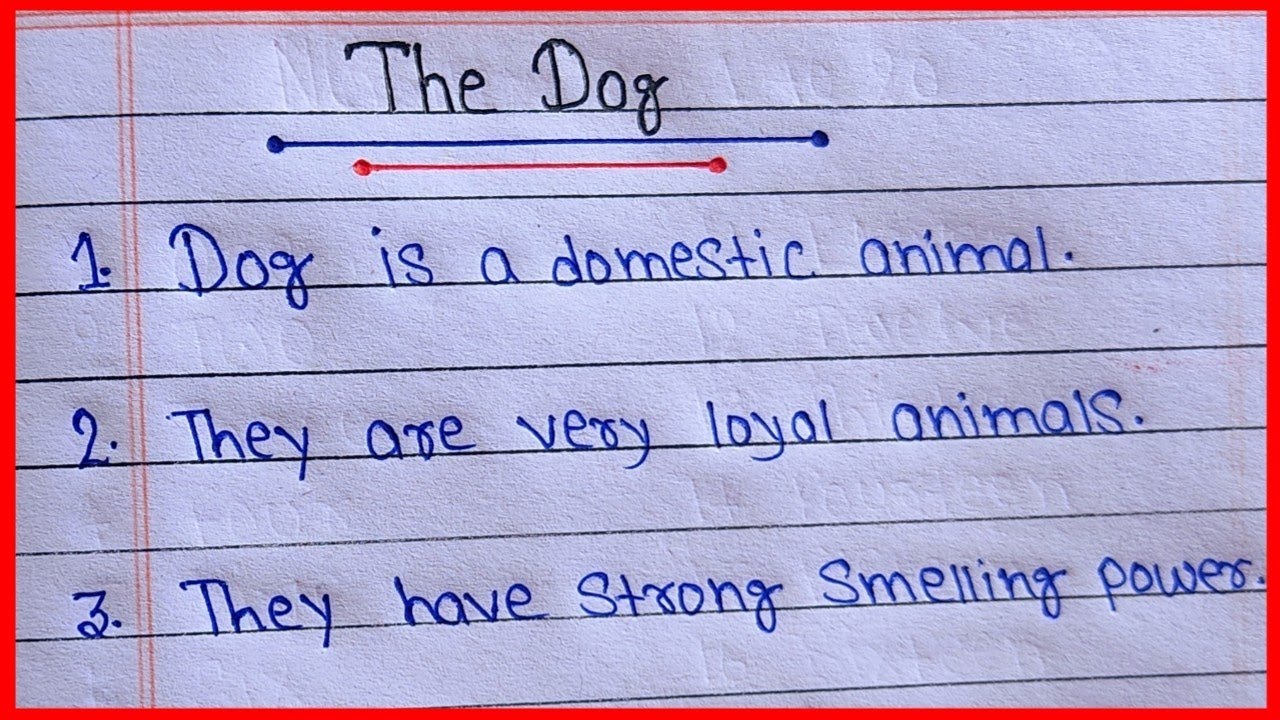 The Dog
1. Dog is a domestic animal.
2. They are very loyal animals.
3. They have Strong Smelling power.